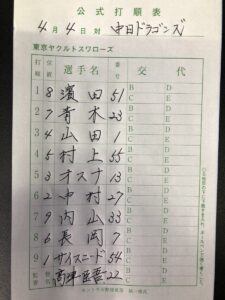 公式打順表
4月4日対 中日ドラゴンズ
東京ヤクルトスワローズ
打順 位置 選手名 番号 交代
1 8 濱田 51 B C D E
2 7 青木 23 B C D E
3 4 山田 1 B C D E
4 5 村上 55 B C D E
5 3 オスナ 13 B C D E
6 2 中村 27 B C D E
7 9 内山 33 B C D E
8 6 長岡 7 B C D E
9 1 サイスニード 54 B C D E
監督 髙津臣吾 22